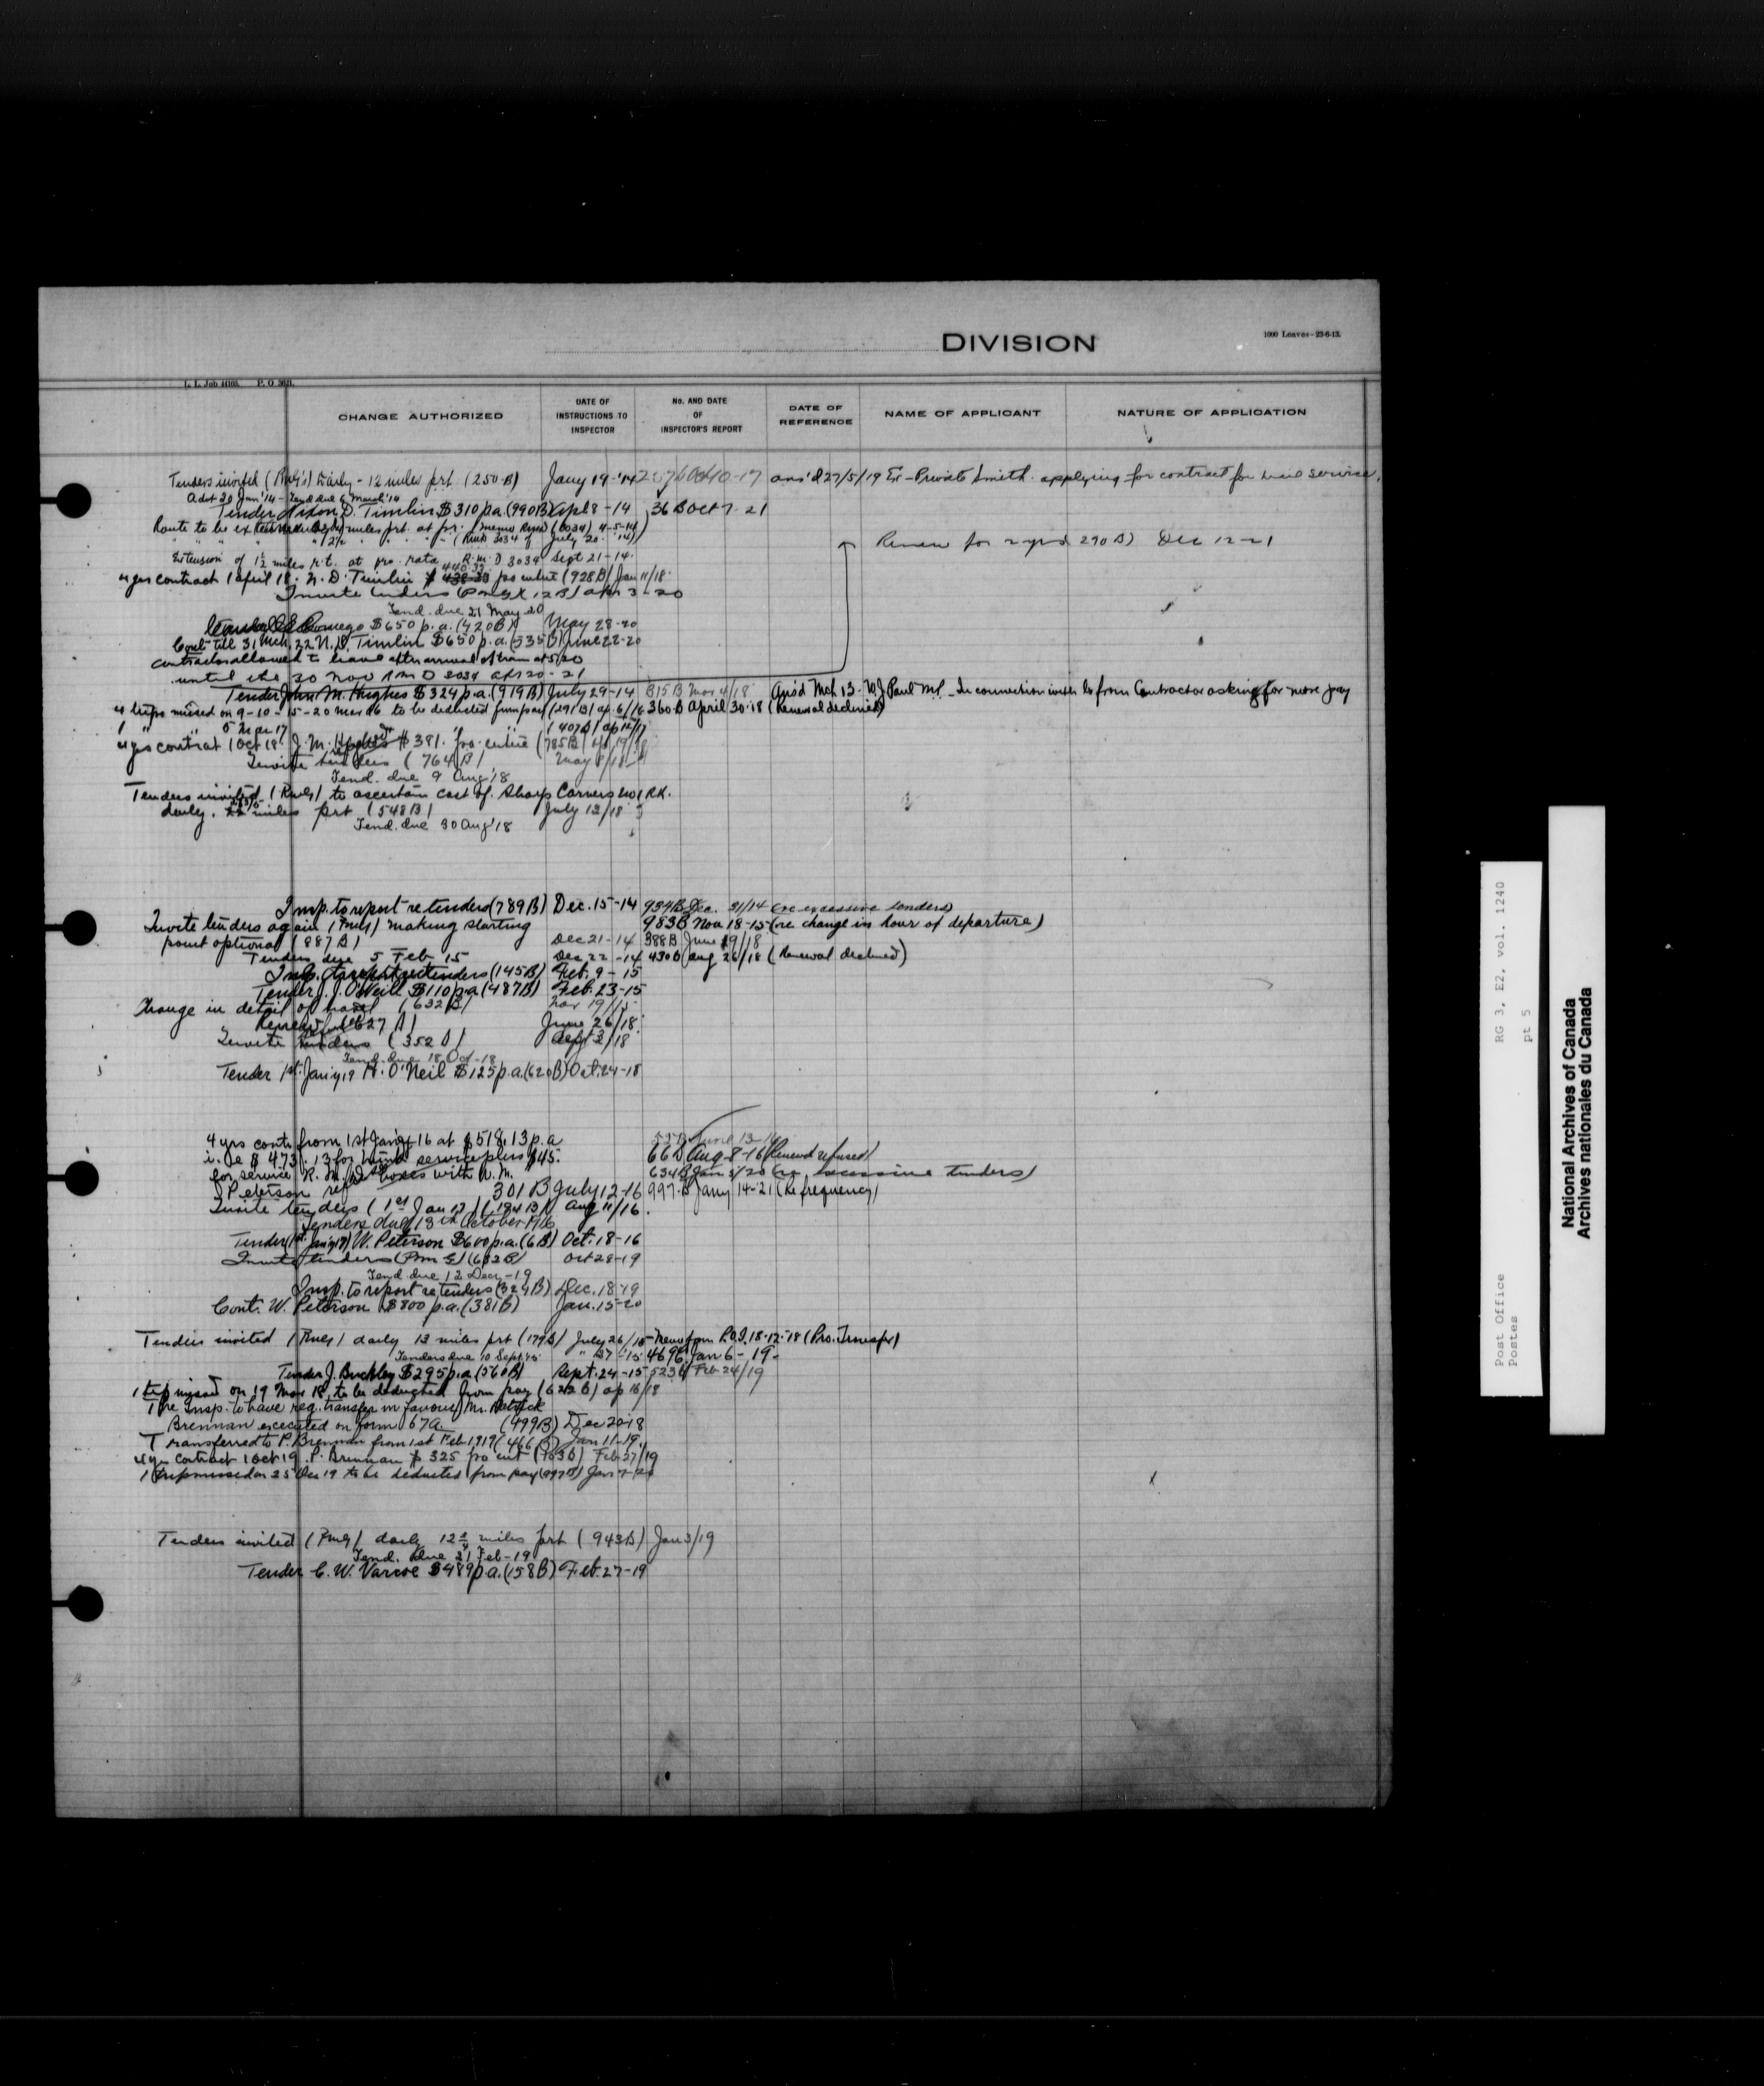 DIVISION
1000 Leaves-23-6-13.
L. L. Job 44103. P. O 362L.
CHANGE AUTHORIZED
DATE OF INSTRUCTIONS TO INSPECTOR
No. AND DATE OF INSPECTOR'S REPORT
DATE OF REFERENCE
NAME OF APPLICANT
NATURE OF APPLICATION
Tenders invited (Rwys) Daily - 12 miles prt (250 B) Jany 19-'14 Oct 10-17 ans'd 27/5/19 Ex-Private Smith. applying for contract for mail service.
Advt 20 Jan'14 - Tend due 6 March '14
Tender Nixon D. Timlin $310 p.a. (990B) Apl 8-14 36 B Oct 7-21
Route to be miles prt. at pr. (memo (3034) 4-5-14)
3034 of July 20 '14)
Renew for 2 yrs 290 B) Dec 12-21
Extension of 1½ miles r.t. at pro. rata R.M.D 3034 Sept 21-14.
4 yrs contract 1 april 18. N. D. Timlin $ 440.33 pro entire (928B) Jan 11/18.
Invite tenders 12 B) apr 3-20
Tend. due 21 May 20
$650 p.a. (420B) May 28-20
Cont till 31 Mch. 22 N. D. Timlin $650 p.a. (535B) June 22-20
contractor allowed to leave after arrival of train at 5/20
until the 30 Nov R M D 3034 apr 20-21
Tender John M. Hughes $324 p.a. (919B) July 29-14 815 B Mar 4/18 Ans'd Mch 13- W. J Paul M.P. - In connection with lr from Contractor asking for more pay
4 trips missed on 9-10-15-20 Mar 16 to be deducted from pay (291 B) ap. 6/16 360 B April 30-18 (Renewal declined)
1 " " 5 Mar 17 " " (407B) ap 12/17
4 yrs contract 1 Oct 18. J. M. Hughes $ 391. pro entire (785B)
Invite tenders (764 B) May 8/18
Tend. due 9 Aug '18
Tenders invited (Rwys) to ascertain cost of Sharps Corners No 1 R.R.
daily. miles prt (548 B) July 13/18
Tend. due 30 Aug '18
Insp. to report re tenders (789 B) Dec. 15-14 934B Dec. 31/14 (re excessive tenders)
Invite tenders again (Rwys) making starting 983B Nov 18-15 (re change in hour of departure)
point optional (887 B) Dec 21-14 388B June 19/18
Tenders due 5 Feb 15 Dec 22-14 430 B Aug 26/18 (Renewal declined)
Insp. to report re tenders (145 B) Feb. 9-15
Tender J. J. O'Neill $110 p.a. (487B) Feb. 23-15
Change in detail of travel (632 B) Nov 19/15
Renewal (627 B) June 26/18
Invite tenders (352 B) Sept 3/18
Tend. due 18 Oct-18
Tender 1st Jany 19 H. O'Neil $125 p.a. (620B) Oct. 24-18
4 yrs contr. from 1st Jany 16 at $518.13 p.a 55 B June 13-16
i. e $ 473.13 for service plus $45. 66 B Aug. 8-16 (Renewal refused)
for service R. M. D boxes with W. M. 634 B Jan 5/20 (re. excessive tenders)
Peterson 301 B July 12-16 997-B Jany 14-21 (Re frequency)
Invite tenders (1st Jan 17) (184 B) Aug 11/16
Tenders due 13th October 1916
Tender 1st Jany 17) W. Peterson $600 p.a. (6B) Oct. 18-16
Invite tenders (P.M.G) (632 B) Oct 28-19
Tend due 12 Decr-19
Insp. to report re tenders (324B) Dec. 18-19
Cont. W. Peterson $800 p.a. (381B) Jan. 15-20
Tenders invited (Rwys) daily 13 miles prt (179 B) July 26/15 Memo from P.O.I. 18-12-'18 (Pro. Transfer)
Tenders due 10 Sept. 15. " 27-'15 469B Jan 6-19-
Tender J. Buckley $295 p.a (560B) Sept. 24-15 523 B Feb 24/19
1 trip missed on 19 Mar 18, to be deducted from pay (622 B) ap 16/18
The insp. to have reg. transfer in favour Mr. Patrick
Brennan executed on form 67A (499B) Dec 20-18
Transferred to P. Brennan from 1st Feb 1919 (466 B) Jan 11-19
4 yrs contract 1 Oct 19. P. Brennan $ 325 pro ent (763B) Feb 27/19
1 trip missed on 25 Dec 19 to be deducted from pay (997 B) Jan 7-20
Tenders invited (Rwys) daily 12¾ miles prt (943B) Jan 3/19
Tend. due 21 Feb-19
Tender C. W. Varcoe $489 p.a. (158B) Feb. 27-19
Post Office RG 3, E2, vol. 1240
Postes pt 5
National Archives of Canada
Archives nationales du Canada